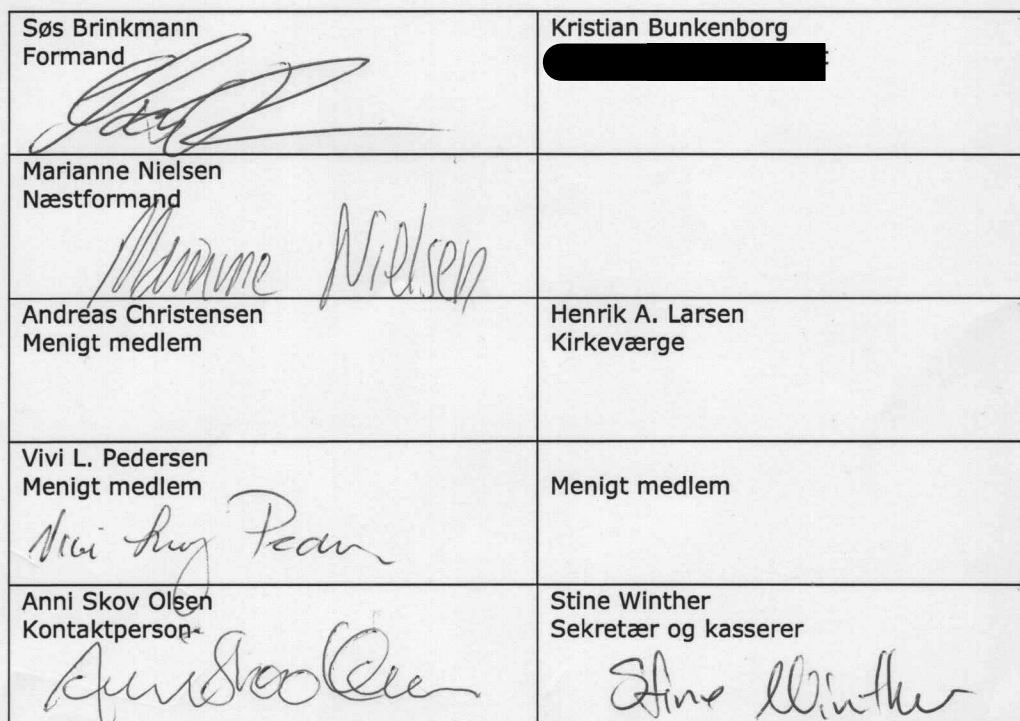 Søs Brinkmann
Formand
Kristian Bunkenborg
Marianne Nielsen
Næstformand
Marianne Nielsen
Andreas Christensen
Menigt medlem
Henrik A. Larsen
Kirkeværge
Vivi L. Pedersen
Menigt medlem
Vivi
Menigt medlem
Anni Skov Olsen
Kontaktperson
Anni Skov Olsen
Stine Winther
Sekretær og kasserer
Stine Winther